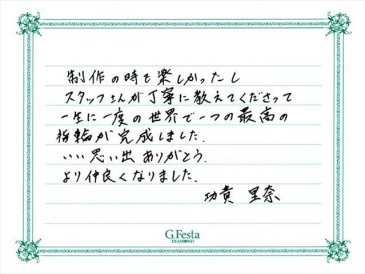 制作の時も楽しかったし
スタッフさんが丁寧に教えてくださって
一生に一度の世界で一つの最高の
指輪が完成しました.
いい思い出ありがとう.
より仲良くなりました.
功貴 里奈
G.Festa
DIAMOND